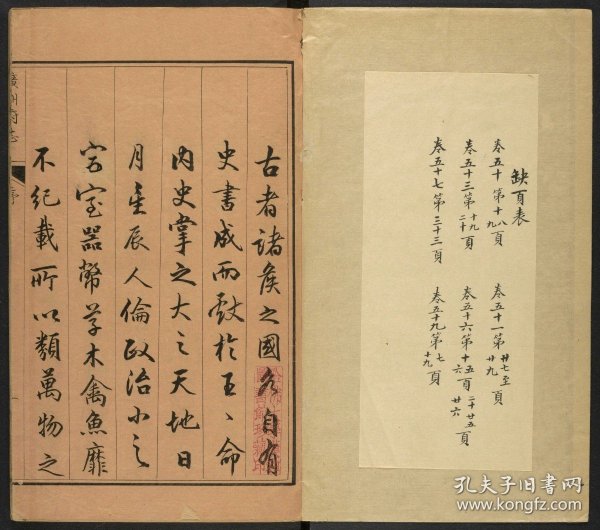 缺頁表
卷五十 第十八九頁
卷五十一第廿七至廿九頁
卷五十三第十九二十頁
卷五十六第十五十六頁 二十廿五廿六頁
卷五十七第三十三頁
卷五十九第七十九頁
古者諸矦之國各自有
史書成而獻於王王命
內史掌之大之天地日
月星辰人倫政治小之
宮室器幣草木禽魚靡
不紀載所以類萬物之
廣州府志
序
孔夫子旧书网
www.kongfz.com